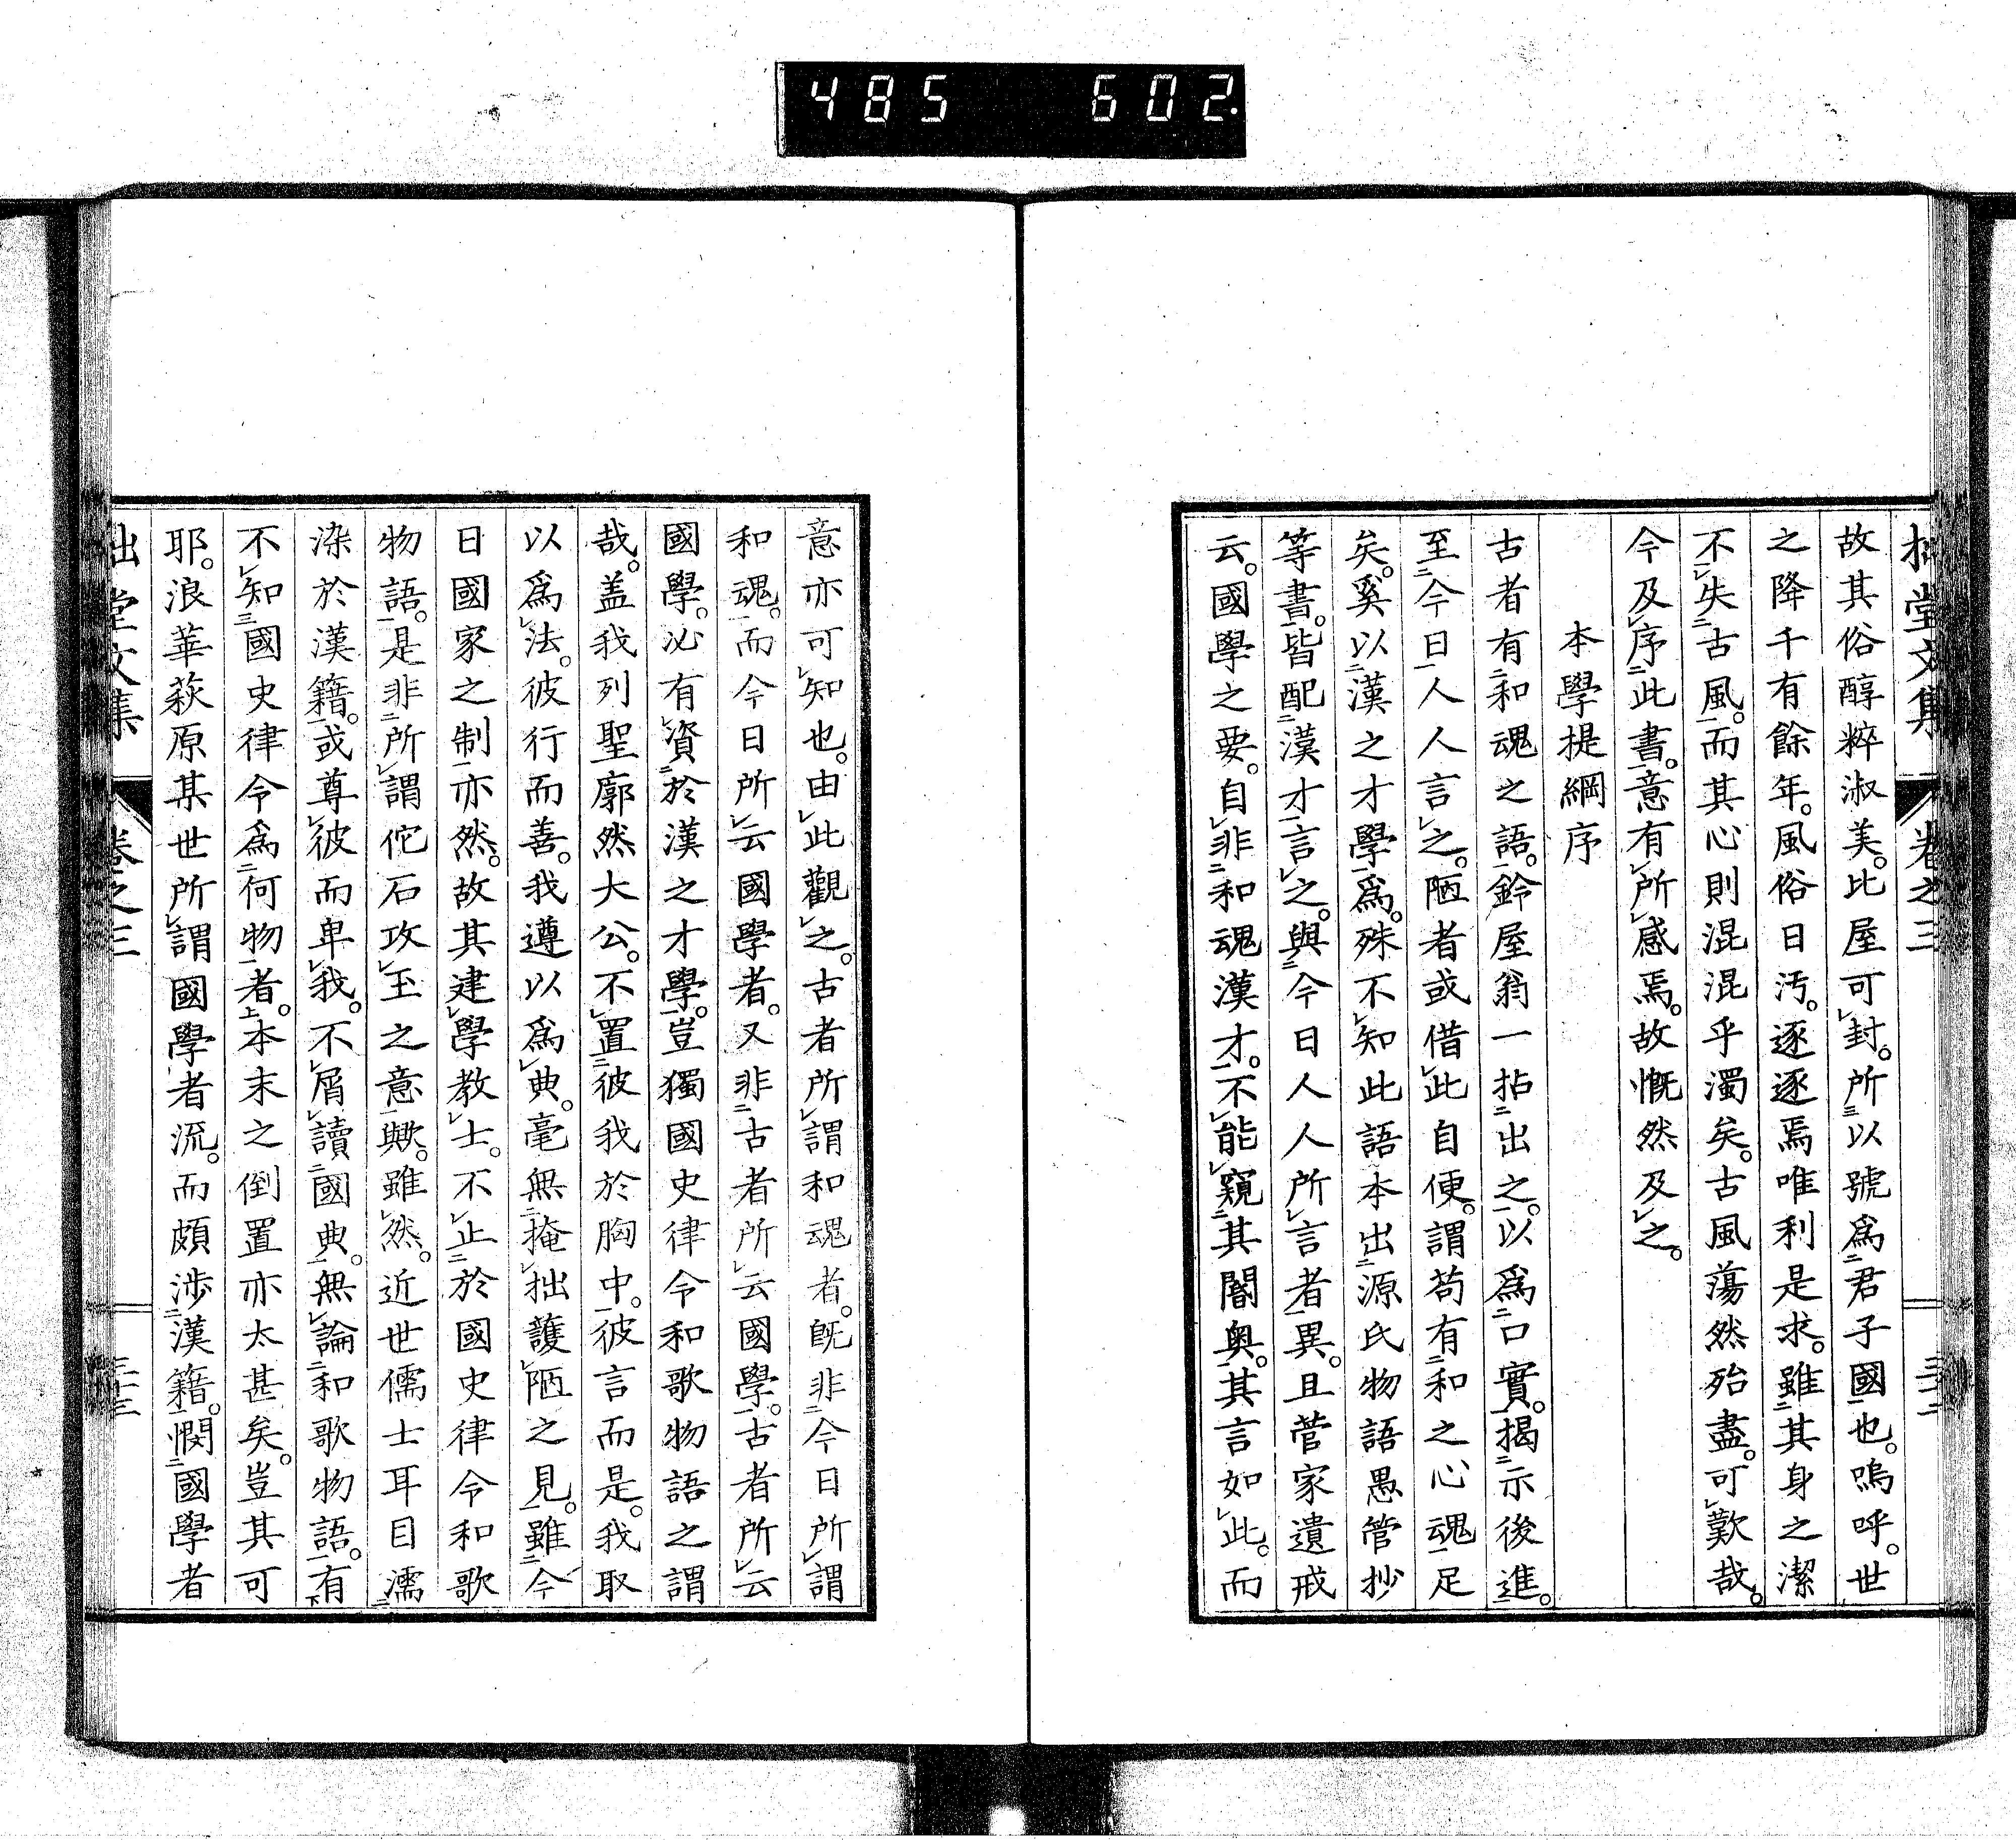 485 602.
拙堂文集 卷之三 三十二
故其俗醇粹淑美。比屋可封。所以號為君子國也。嗚呼。世
之降千有餘年。風俗日汚。逐逐焉唯利是求。雖其身之潔
不失古風。而其心則混混乎濁矣。古風蕩然殆盡。可歎哉。
今及序此書。意有所感焉。故慨然及之。
本學提綱序
古者有和魂之語。鈴屋翁一拈出之。以為口實。揭示後進。
至今日人人言之。陋者或借此自便。謂苟有和之心魂足
矣。奚以漢之才學為。殊不知此語本出源氏物語愚管抄
等書。皆配漢才言之。與今日人人所言者異。且菅家遺戒
云。國學之要。自非和魂漢才。不能窺其閫奧。其言如此。而
意亦可知也。由此觀之。古者所謂和魂者。旣非今日所謂
和魂。而今日所云國學者。又非古者所云國學。古者所云
國學。必有資於漢之才學。豈獨國史律令和歌物語之謂
哉。盖我列聖廓然大公。不置彼我於胸中。彼言而是。我取
以為法。彼行而善。我遵以為典。毫無掩拙護陋之見。雖今
日國家之制亦然。故其建學教士。不止於國史律令和歌
物語。是非所謂佗石攻玉之意歟。雖然。近世儒士耳目濡
染於漢籍。或尊彼而卑我。不屑讀國典。無論和歌物語。有
不知國史律令為何物者。本末之倒置亦太甚矣。豈其可
耶。浪華萩原某世所謂國學者流。而頗涉漢籍。憫國學者
拙堂文集 卷之三 三十三